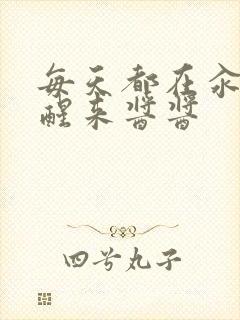 每天都在汆
醒来酱酱
四号丸子